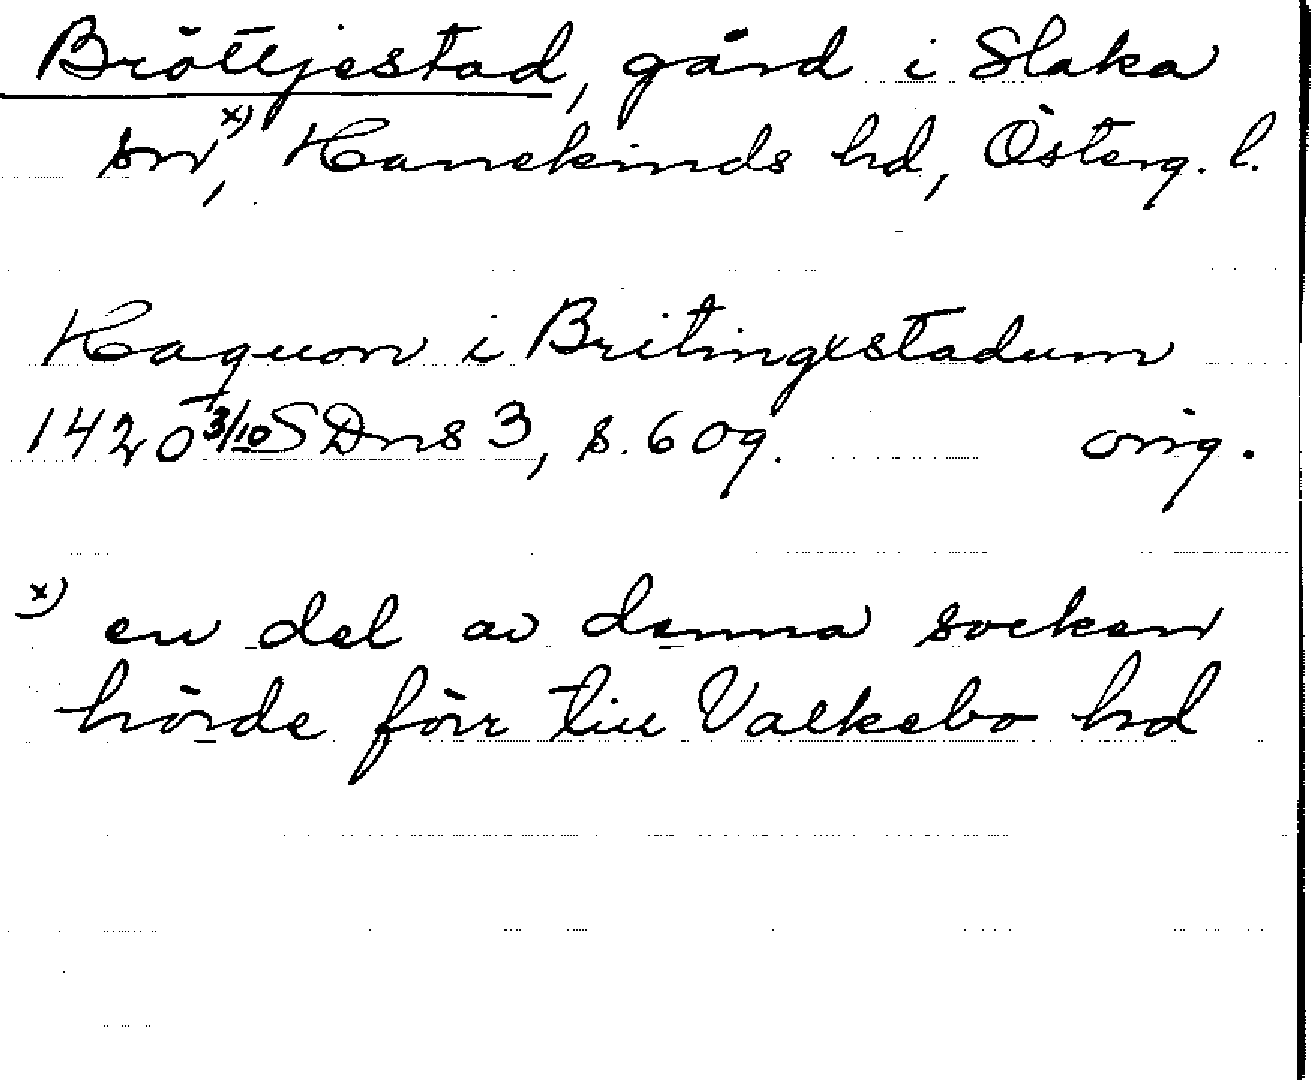 Bröttjestad, gård i Slaka
sn,x) Hanekinds hd, Österg. l.
Haquon i Britingxstadum
1420 3/10 SDns 3, s. 609. orig.
x) en del av denna socken
hörde förr till Valkebo hd